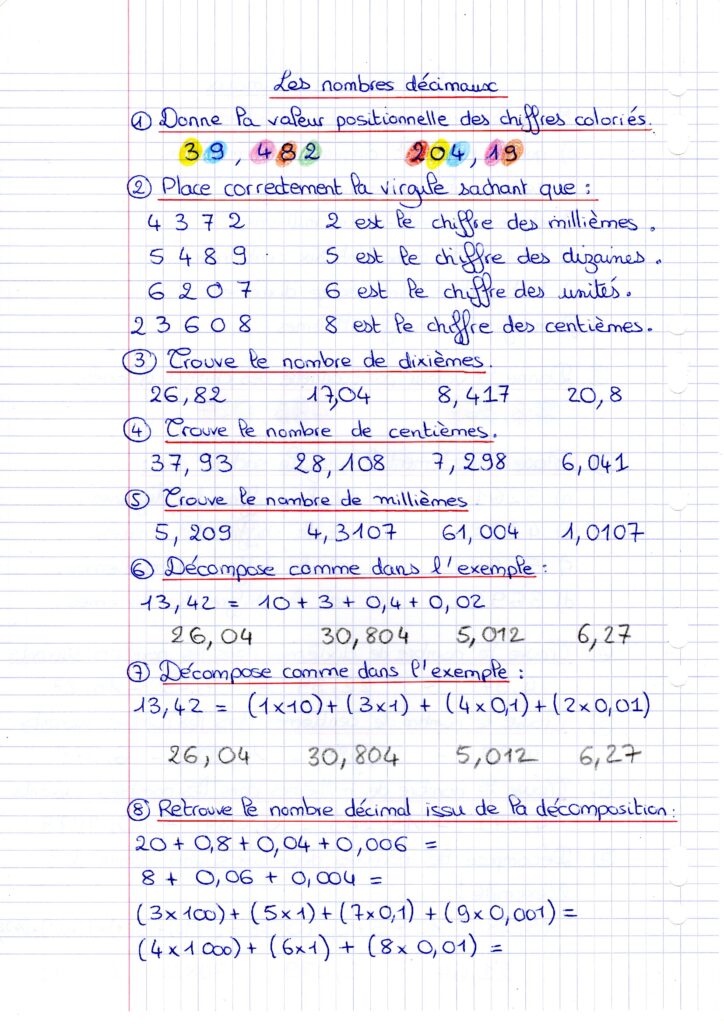 Les nombres décimaux
① Donne la valeur positionnelle des chiffres coloriés.
39,482 204,19
② Place correctement la virgule sachant que :
4 3 7 2 2 est le chiffre des millièmes.
5 4 8 9 5 est le chiffre des dizaines.
6 2 0 7 6 est le chiffre des unités.
2 3 6 0 8 8 est le chiffre des centièmes.
③ Trouve le nombre de dixièmes.
26,82 17,04 8,417 20,8
④ Trouve le nombre de centièmes.
37,93 28,108 7,298 6,041
⑤ Trouve le nombre de millièmes
5,209 4,3107 61,004 1,0107
⑥ Décompose comme dans l'exemple :
13,42 = 10 + 3 + 0,4 + 0,02
26,04 30,804 5,012 6,27
⑦ Décompose comme dans l'exemple :
13,42 = (1x10) + (3x1) + (4x0,1) + (2x0,01)
26,04 30,804 5,012 6,27
⑧ Retrouve le nombre décimal issu de la décomposition :
20 + 0,8 + 0,04 + 0,006 =
8 + 0,06 + 0,004 =
(3x100) + (5x1) + (7x0,1) + (9x0,001) =
(4x1 000) + (6x1) + (8x0,01) =